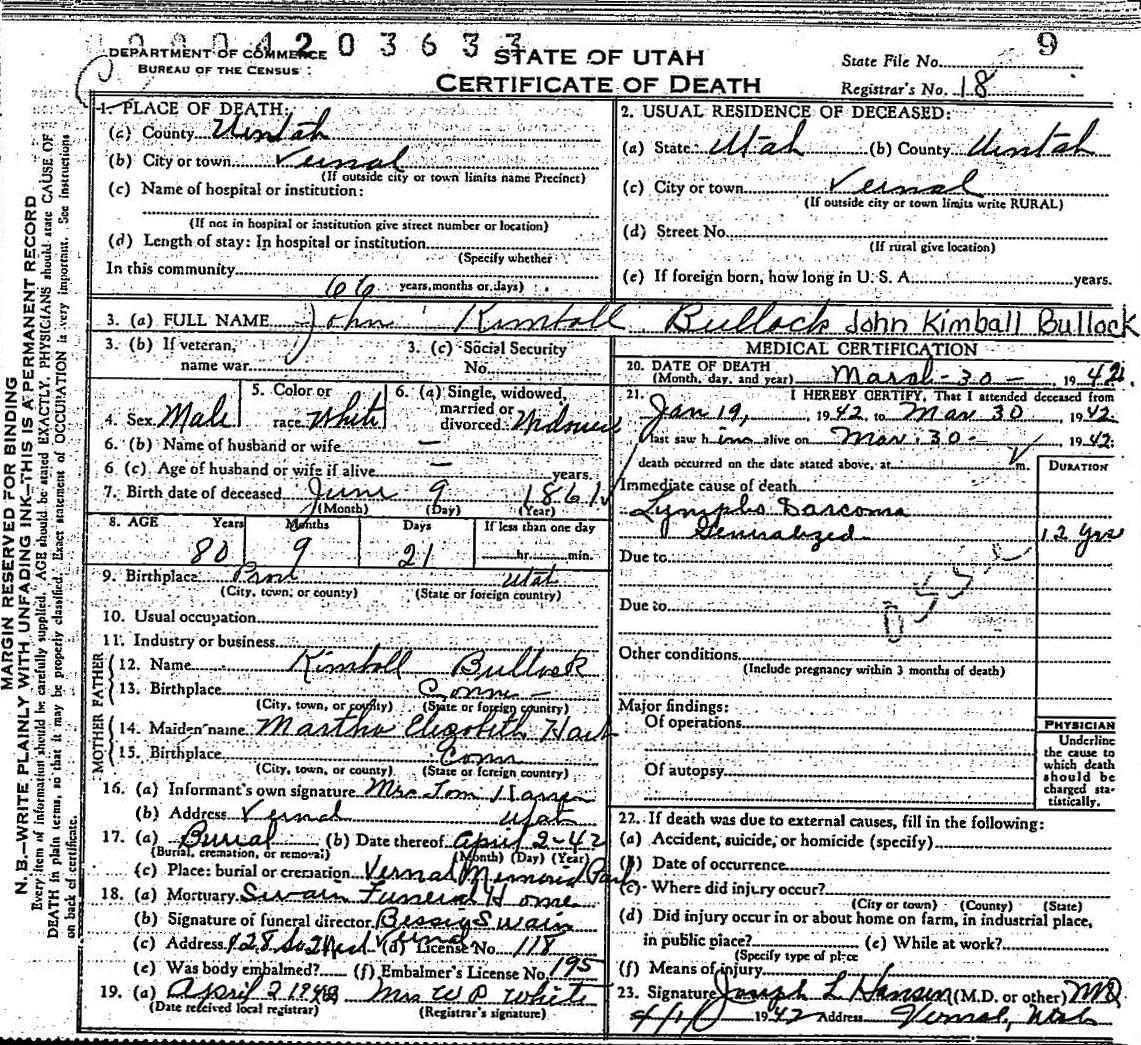 0 0 0 0 4 2 0 3 6 3 3
9
DEPARTMENT OF COMMERCE
BUREAU OF THE CENSUS
STATE OF UTAH
CERTIFICATE OF DEATH
State File No.
Registrar's No. 18
MARGIN RESERVED FOR BINDING
N. B.—WRITE PLAINLY WITH UNFADING INK—THIS IS A PERMANENT RECORD
Every item of information should be carefully supplied. AGE should be stated EXACTLY. PHYSICIANS should state CAUSE OF
DEATH in plain terms, so that it may be properly classified. Exact statement of OCCUPATION is very important. See instructions
on back of certificate.
1. PLACE OF DEATH:
(a) County Uintah
(b) City or town Vernal
(If outside city or town limits name Precinct)
(c) Name of hospital or institution:
(If not in hospital or institution give street number or location)
(d) Length of stay: In hospital or institution
(Specify whether
In this community 66
years, months or days)
2. USUAL RESIDENCE OF DECEASED:
(a) State Utah (b) County Uintah
(c) City or town Vernal
(If outside city or town limits write RURAL)
(d) Street No.
(If rural give location)
(e) If foreign born, how long in U. S. A. years.
3. (a) FULL NAME John Kimball Bullock John Kimball Bullock
3. (b) If veteran,
name war
3. (c) Social Security
No.
4. Sex Male
5. Color or
race White
6. (a) Single, widowed,
married or
divorced Widowed
6. (b) Name of husband or wife —
6. (c) Age of husband or wife if alive — years.
7. Birth date of deceased June 9 1861
(Month) (Day) (Year)
8. AGE Years Months Days If less than one day
80 9 21 hr. min.
9. Birthplace Provo Utah
(City, town, or county) (State or foreign country)
10. Usual occupation
11. Industry or business
FATHER
12. Name Kimball Bullock
13. Birthplace Conn —
(City, town, or county) (State or foreign country)
MOTHER
14. Maiden name Martha Elizabeth Hart
15. Birthplace Conn
(City, town, or county) (State or foreign country)
16. (a) Informant's own signature Mrs Tom
(b) Address Vernal Utah
17. (a) Burial (b) Date thereof April 2-42
(Burial, cremation, or removal) (Month) (Day) (Year)
(c) Place: burial or cremation Vernal Memorial Park
18. (a) Mortuary Swain Funeral Home
(b) Signature of funeral director Bessie Swain
(c) Address 128 So 2nd Vernal (d) License No. 118
(e) Was body embalmed? (f) Embalmer's License No. 195
19. (a) April 2 1942 Mrs W P White
(Date received local registrar) (Registrar's signature)
MEDICAL CERTIFICATION
20. DATE OF DEATH
(Month, day, and year) March - 30 - , 1942
21. I HEREBY CERTIFY, That I attended deceased from
Jan 19, , 1942 to Mar 30 , 1942
last saw him alive on Mar. 30 - , 1942
death occurred on the date stated above, at m.
DURATION
Immediate cause of death
Lympho Sarcoma
Generalized 12 yrs
Due to
Due to
Other conditions
(Include pregnancy within 3 months of death)
Major findings:
Of operations
Of autopsy
PHYSICIAN
Underline
the cause to
which death
should be
charged sta-
tistically.
22. If death was due to external causes, fill in the following:
(a) Accident, suicide, or homicide (specify)
(b) Date of occurrence
(c) Where did injury occur?
(City or town) (County) (State)
(d) Did injury occur in or about home on farm, in industrial place,
in public place? (e) While at work?
(Specify type of place
(f) Means of injury
23. Signature Joseph L Hansen (M.D. or other) MD
4/1 1942 Address Vernal, Utah